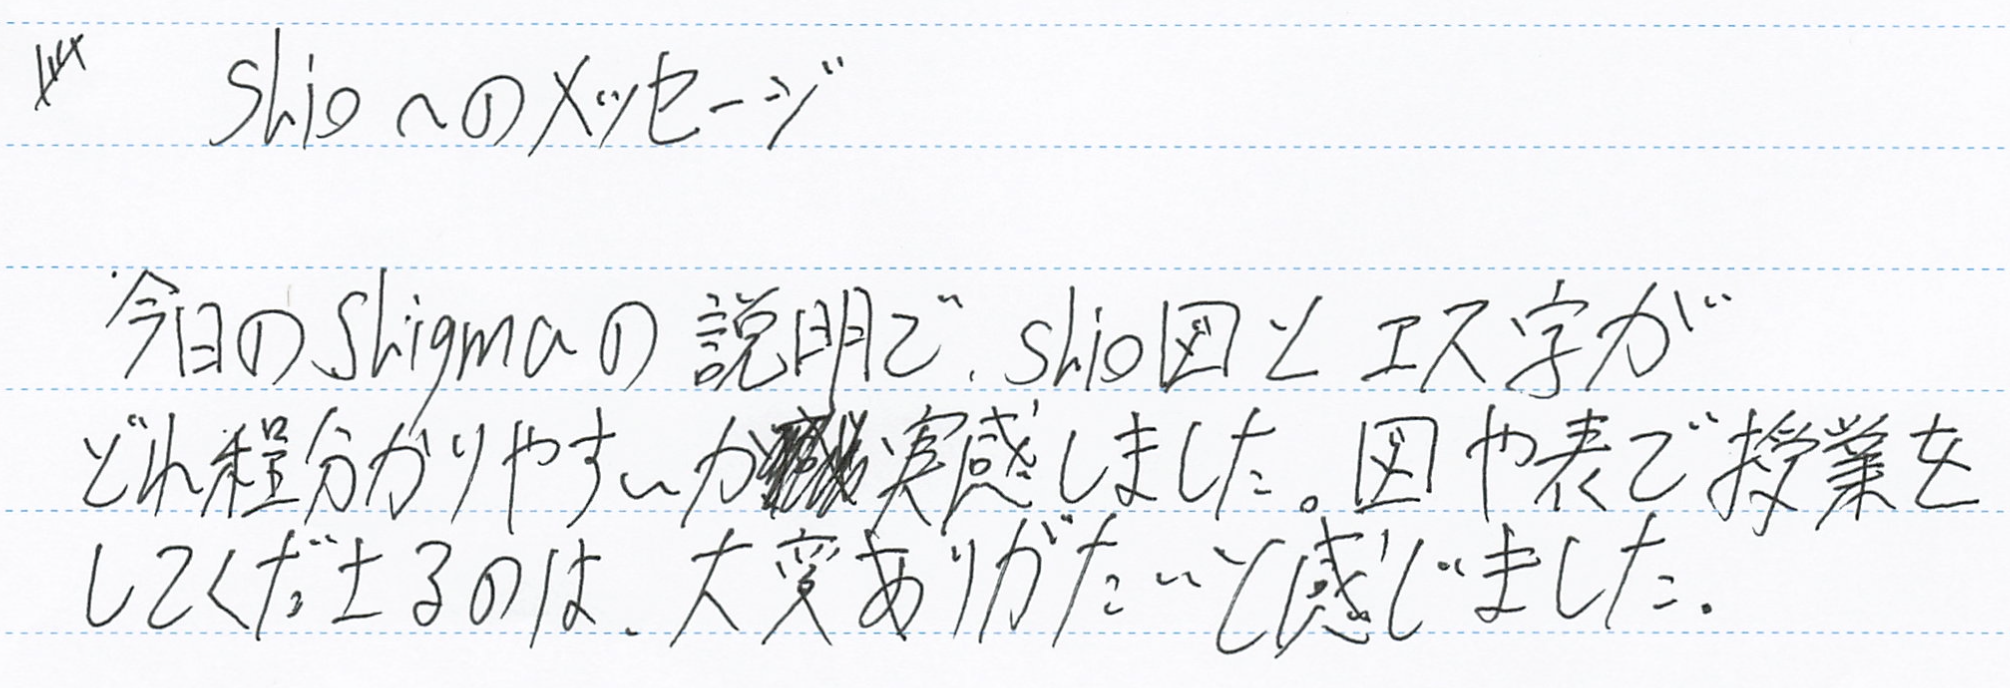 Shioへのメッセージ
今日のShigmaの説明で、Shio図とエス字が
どれ程分かりやすいか実感しました。図や表で授業を
してくださるのは、大変ありがたいと感じました。